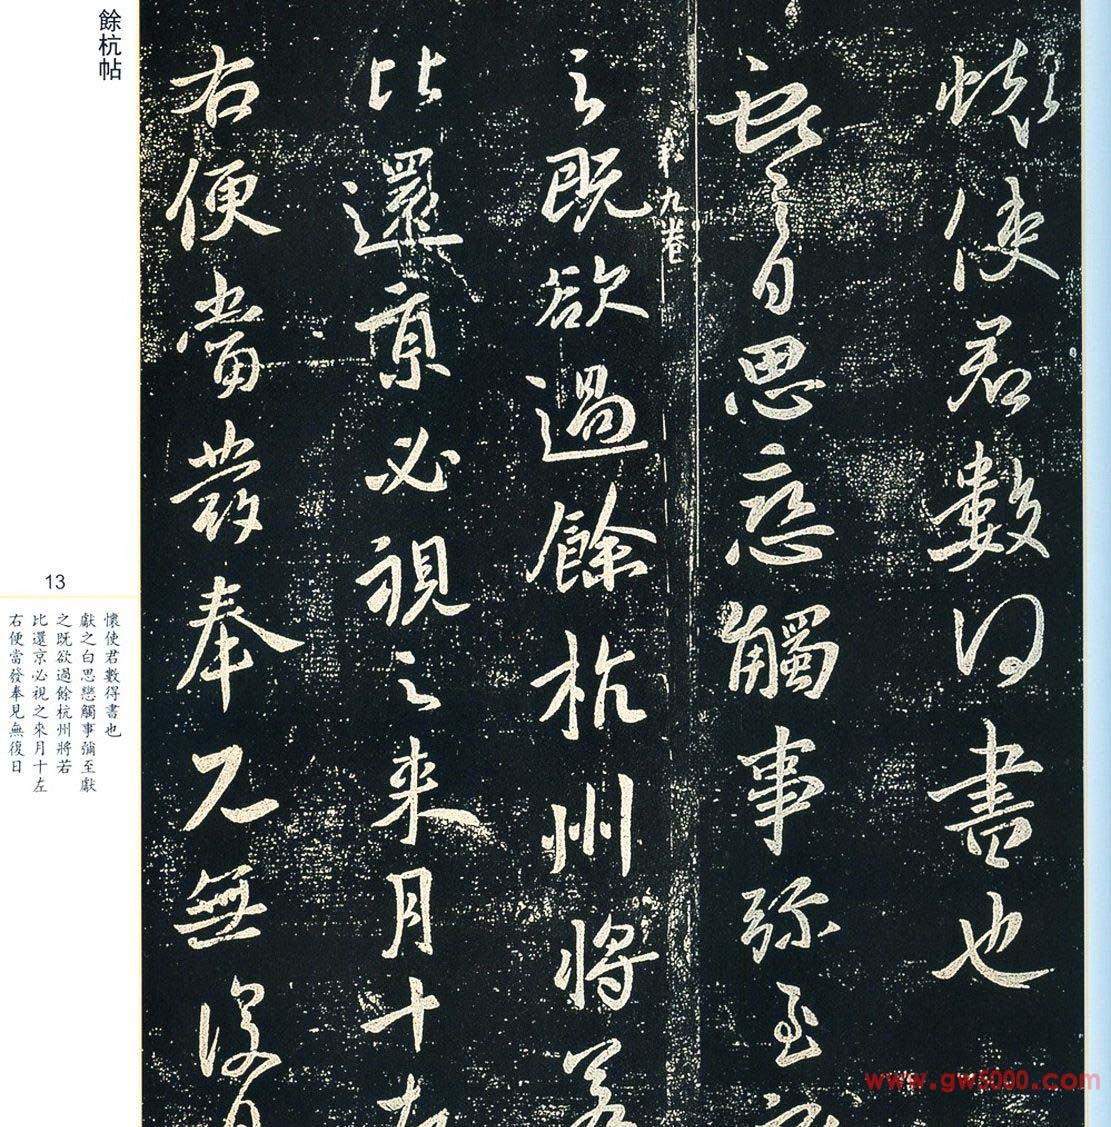 懷使君數得書也
獻之白思戀觸事弥至獻
第九卷
之既欲過餘杭州將若
比還京必視之來月十左
右便當發奉見無復日
餘杭帖
13
懷使君數得書也
獻之白思戀觸事彌至獻
之既欲過餘杭州將若
比還京必視之來月十左
右便當發奉見無復日
www.gw5000.com